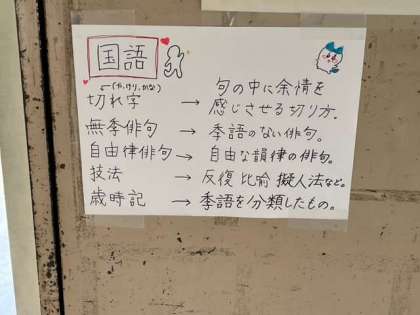 国語
(や、けり、かな)
切れ字 → 句の中に余情を
感じさせる切り方.
無季俳句 → 季語のない俳句。
自由律俳句 → 自由な韻律の俳句。
技法 → 反復 比喩 擬人法など。
歳時記 → 季語を分類したもの。